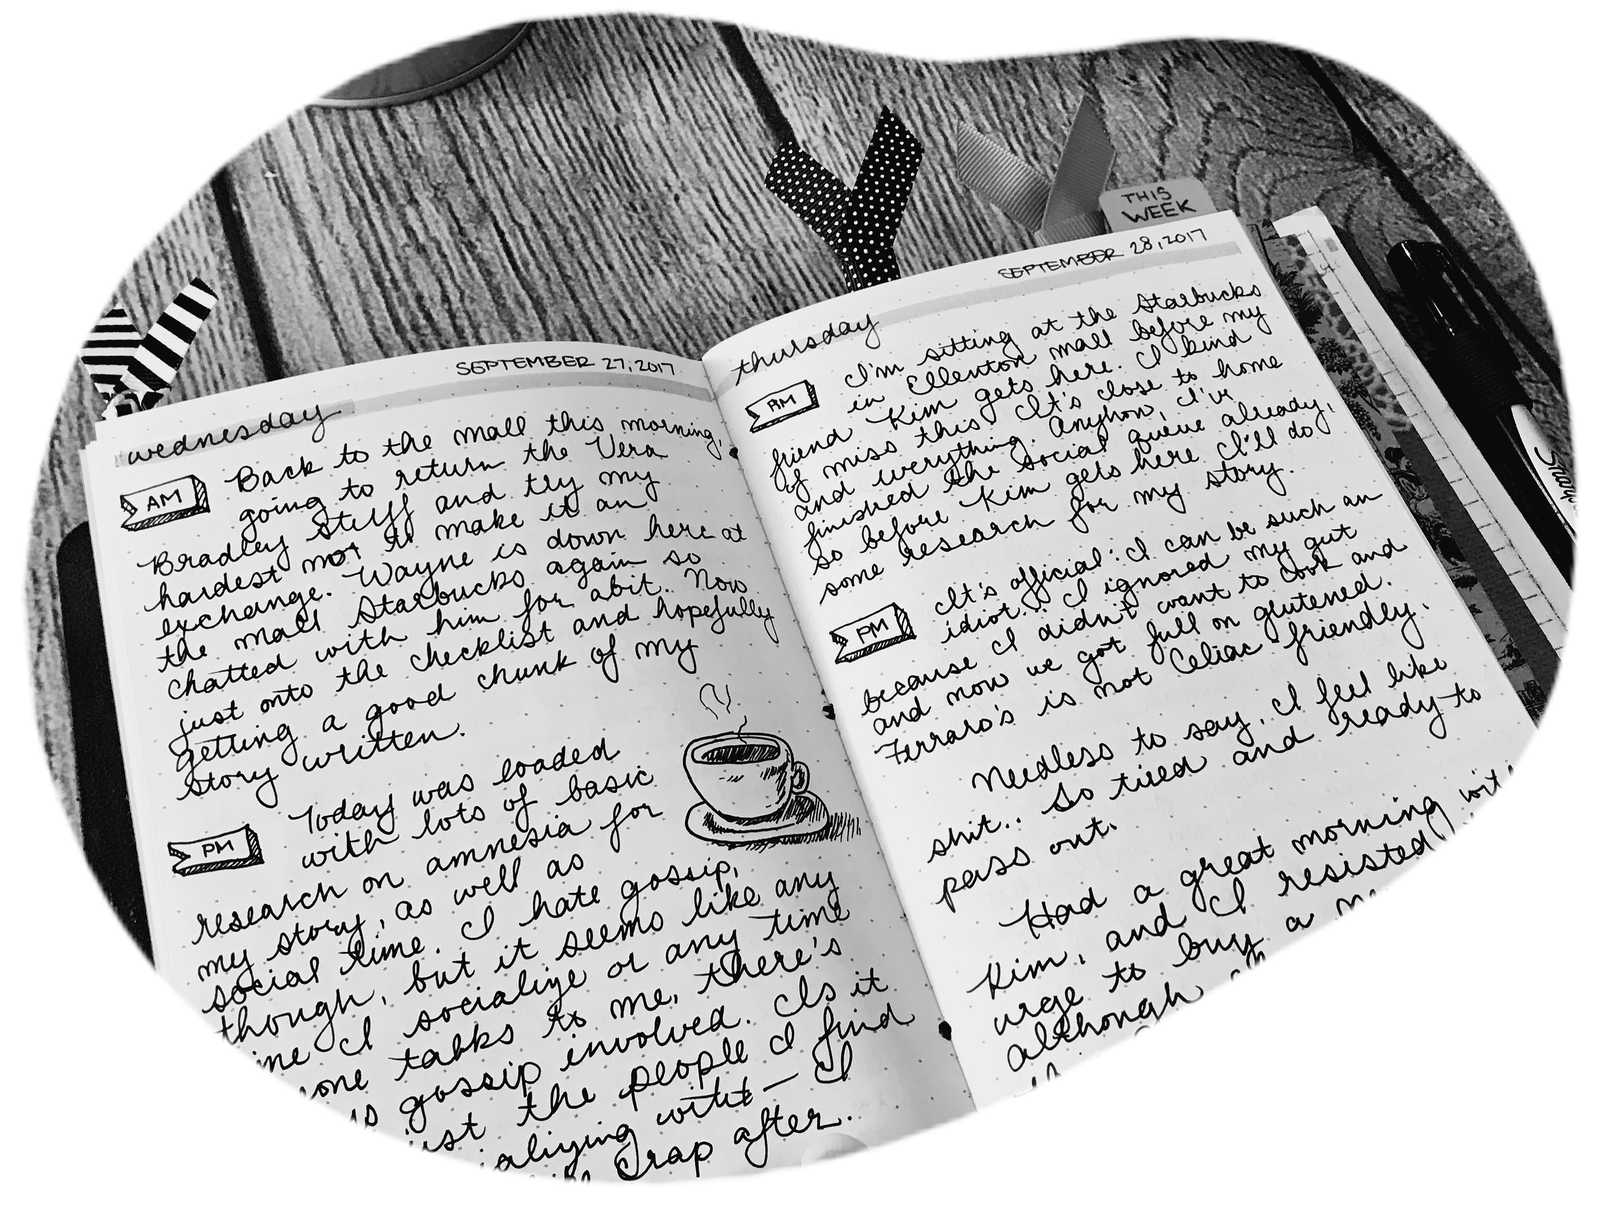 THIS
WEEK
SEPTEMBER 27, 2017
wednesday
AM
Back to the mall this morning,
going to return the Vera
Bradley stuff and try my
hardest not to make it an
exchange. Wayne is down here at
the mall Starbucks again so
chatted with him for abit. Now
just onto the checklist and hopefully
getting a good chunk of my
story written.
PM
Today was loaded
with lots of basic
research on amnesia for
my story, as well as
social time. I hate gossip,
though, but it seems like any
I socialize or any time
talks to me, there's
gossip involved. Is it
the people I find
with — I
crap after.
SEPTEMBER 28, 2017
thursday
AM
I'm sitting at the Starbucks
in Ellenton mall before my
friend Kim gets here. I kind
of miss this. It's close to home
and everything. Anyhoo, I've
finished the social queue already,
so before Kim gets here I'll do
some research for my story.
PM
It's official: I can be such an
idiot. I ignored my gut
because I didn't want to cook and
and now we got full on glutened.
Ferraro's is not Celiac friendly.
Needless to say, I feel like
shit.. So tired and ready to
pass out.
Had a great morning with
Kim, and I resisted
urge to buy a
although